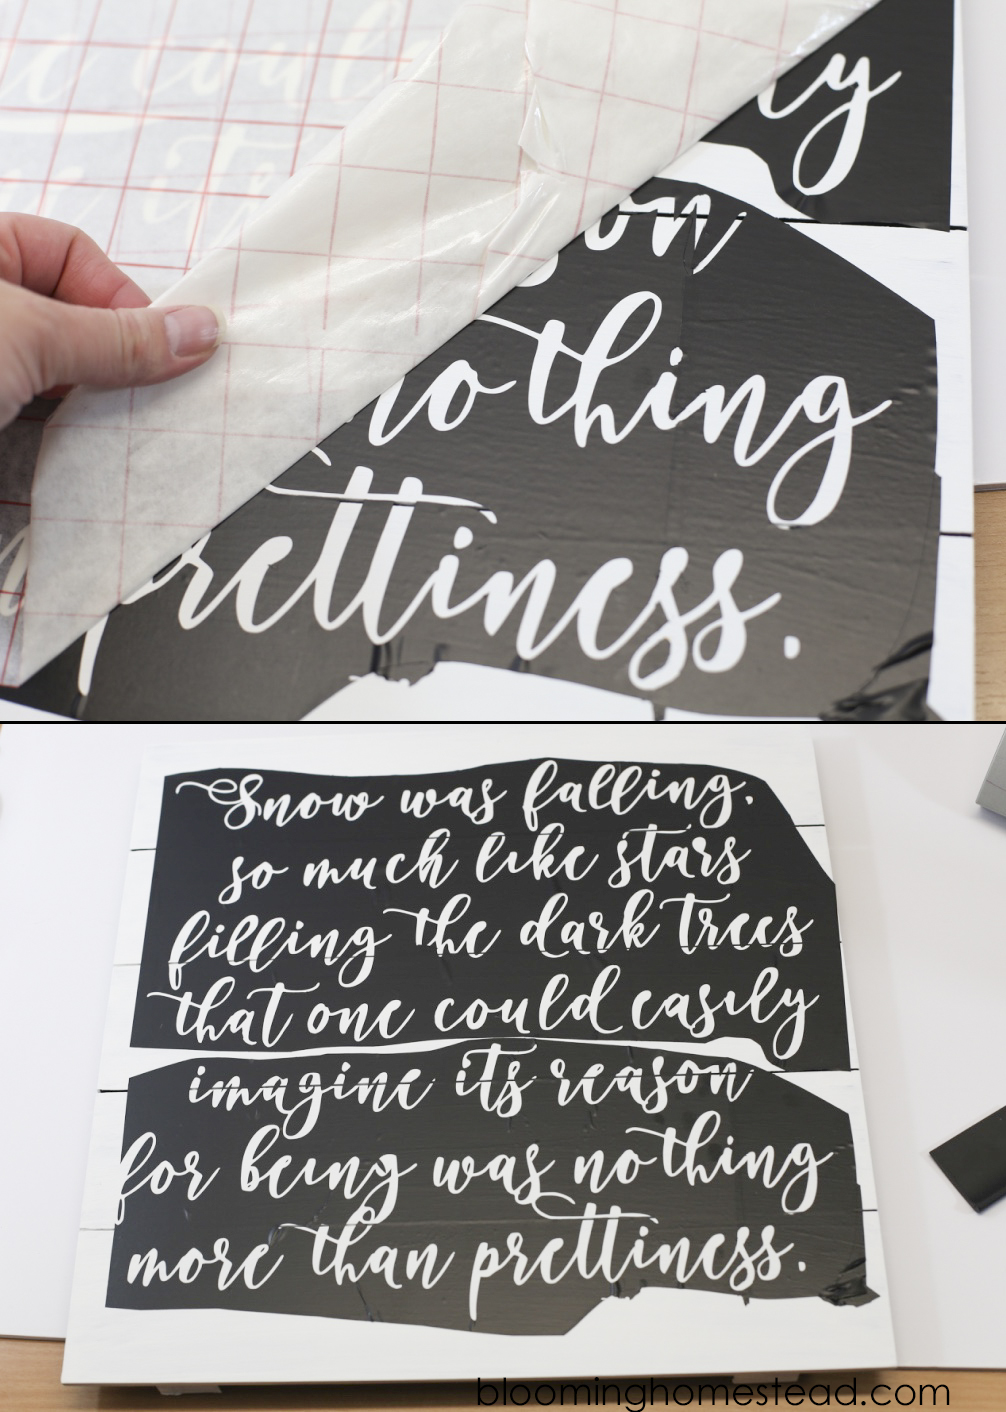 could ly
its on
nothing
prettiness.
Snow was falling,
so much like stars
filling the dark trees
that one could easily
imagine its reason
for being was nothing
more than prettiness.
bloominghomestead.com